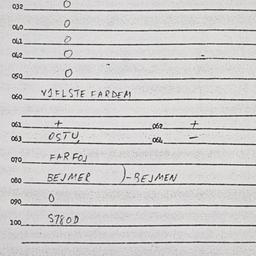 032 0
040 0
041 0
042 0 -
050 0
060 VIFLSTE FARDEM
061 + 062 +
063 OSTU, 064 -
070 FARFOJ
080 BEJMER )-BEJMEN
090 0
100 S780D